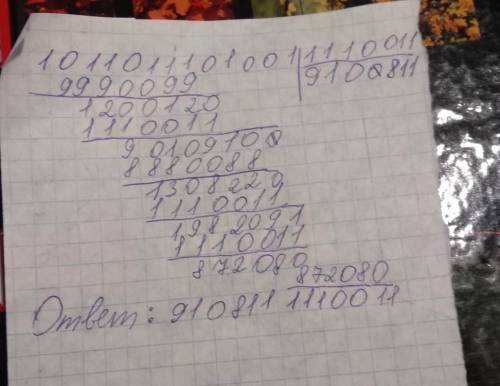 10110111101001 | 1110011
9990099 9100811
1200120
1110011
90109100
8880088
1308229
1110011
1982091
1110011
872080
Ответ: 910811 872080/1110011